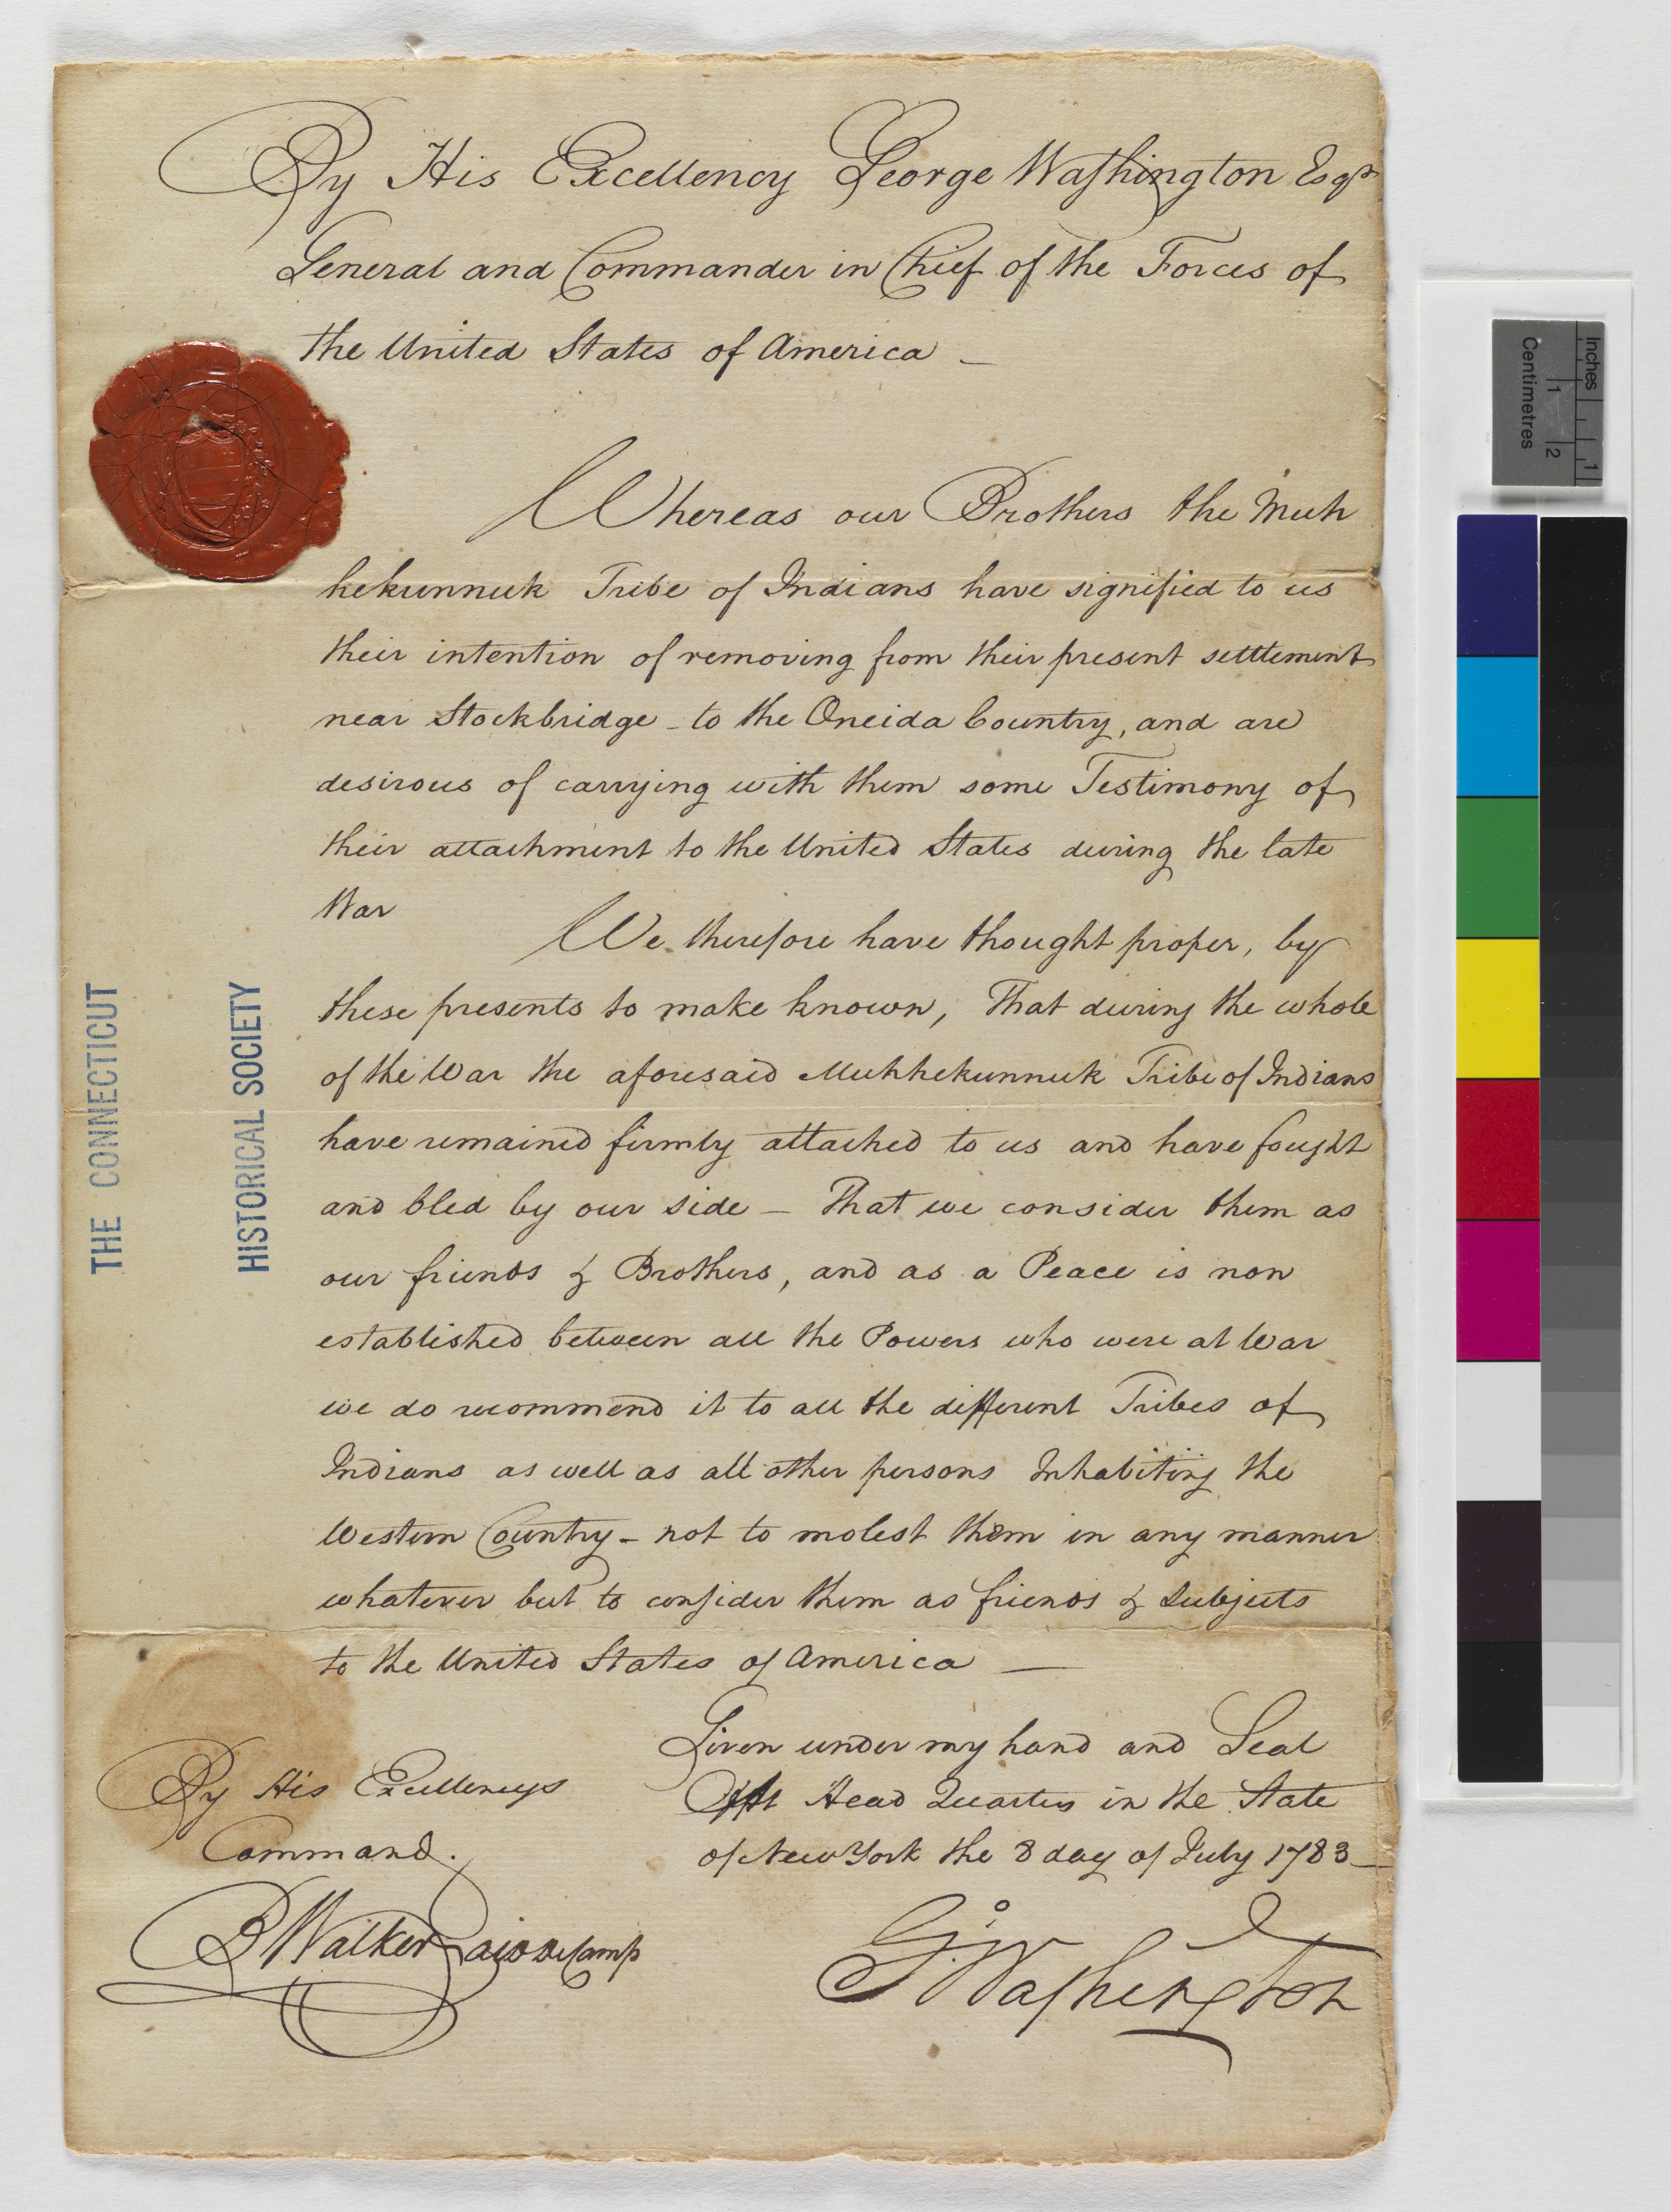 By His Excellency George Washington Esqr
General and Commander in Chief of the Forces of
the United States of America —
Whereas our Brothers the Muh
hekunnuk Tribe of Indians have signified to us
their intention of removing from their present settlement
near Stockbridge - to the Oneida Country, and are
desirous of carrying with them some Testimony of
their attachment to the United States during the late
War
We therefore have thought proper, by
these presents to make known, That during the whole
of the War the aforesaid Muhhekunnuk Tribe of Indians
have remained firmly attached to us and have fought
and bled by our side — That we consider them as
our friends & Brothers, and as a Peace is now
established between all the Powers who were at War
we do recommend it to all the different Tribes of
Indians as well as all other persons Inhabiting the
Western Country - not to molest them in any manner
whatever but to consider them as friends & Subjects
to the United States of America —
Given under my hand and Seal
At Head Quarters in the State
of New York the 8 day of July 1783 —
By His Excellencys
Command.
B Walker aid de Camp
Go Washington
THE CONNECTICUT
HISTORICAL SOCIETY
Inches
1
Centimetres
1
2